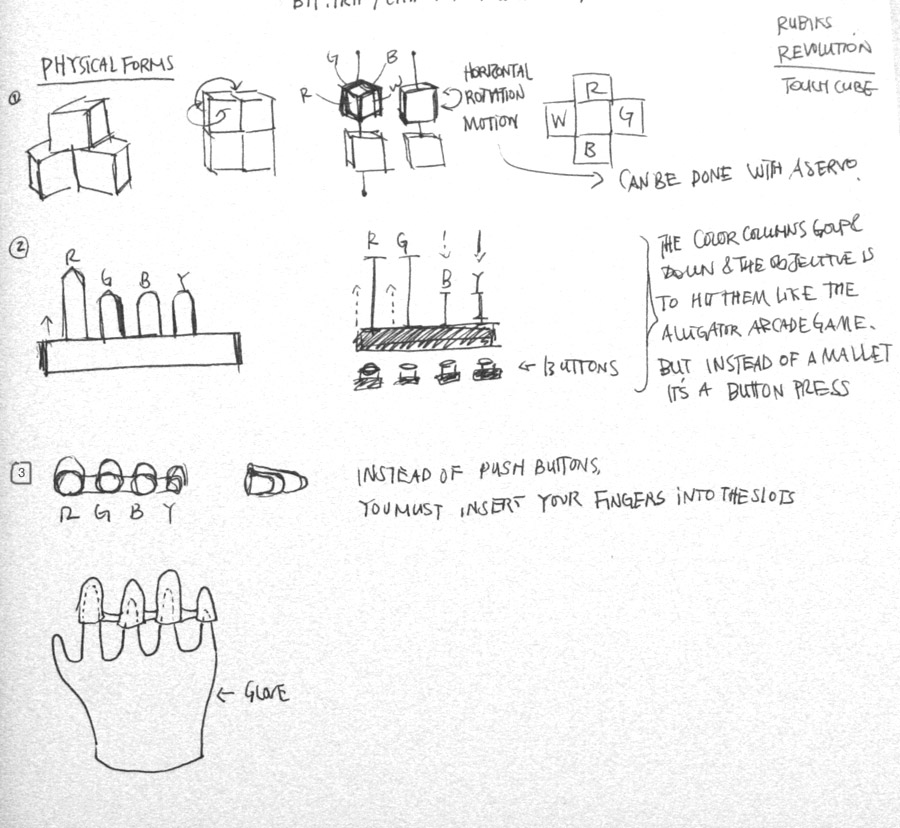 RUBIKS
REVOLUTION
TOUCH CUBE
PHYSICAL FORMS
1
G B
R W
HORIZONTAL
ROTATION
MOTION
R
W G
B
CAN BE DONE WITH A SERVO.
2
R
G B Y
R G
B Y
← BUTTONS
THE COLOR COLUMNS GO UP &
DOWN & THE OBJECTIVE IS
TO HIT THEM LIKE THE
ALLIGATOR ARCADE GAME.
BUT INSTEAD OF A MALLET
IT'S A BUTTON PRESS
3
R G B Y
INSTEAD OF PUSH BUTTONS,
YOU MUST INSERT YOUR FINGERS INTO THE SLOTS
← GLOVE